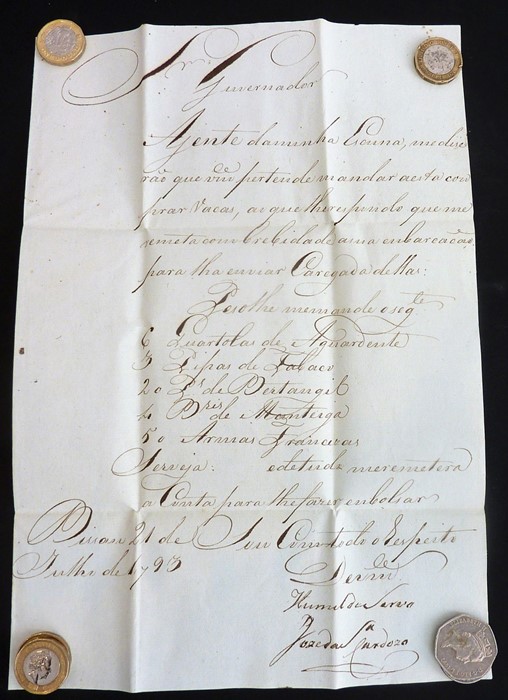 Snr.
Guvernador
Agente daminha Escuna, me dise
rão que vm pertende mandar aesta com
prar Vacas, ao que lherespondo que me
remeta com brebidade asua enbarcação
para lha enviar Caregada dellas:
Pesolhe memande oseg.te
6 Quartolas de Agoardente
3 Pipas de Tabaco
20 P.s de Bertangil
4 Bris de Manteiga
50 Armas Francezas
Serveja: edetudo meremetera
a Conta para lhefazer enbolsar
Bisau 21 de Sou Comtodo o Respeito
Julho de 1793
De vm.
Humilde Servo
Joze da S.a Cardozo